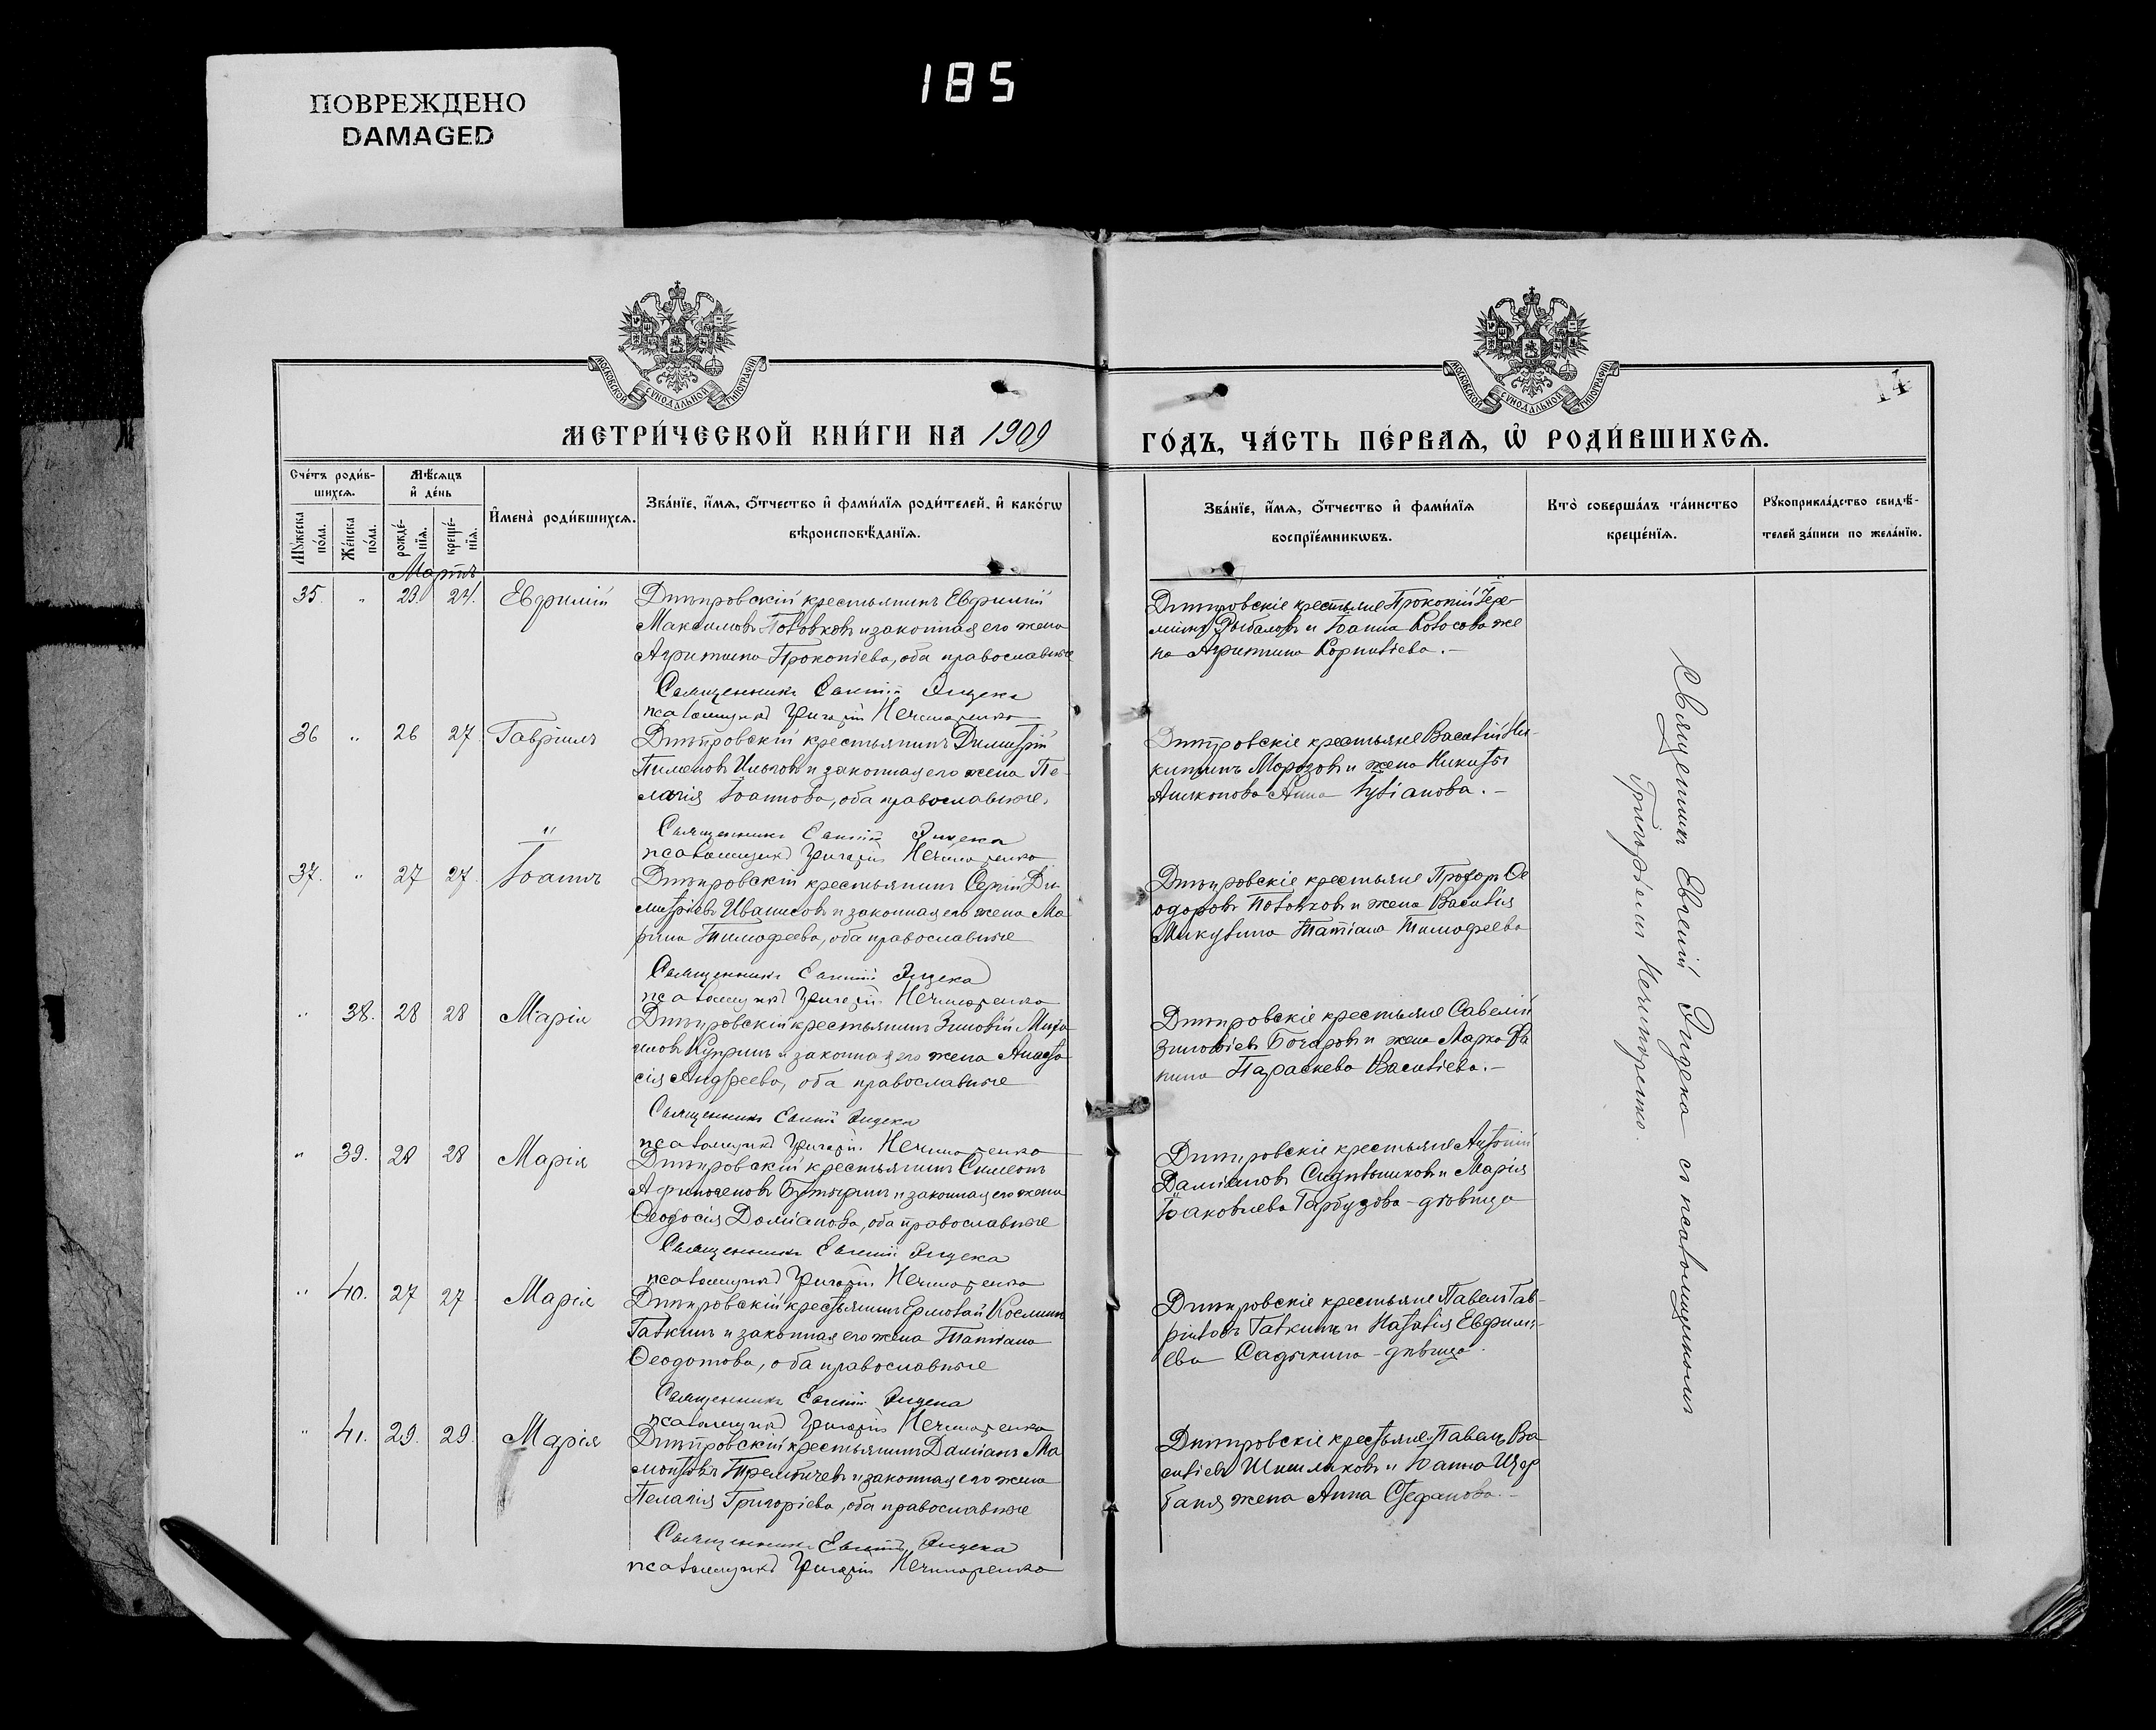 185
ПОВРЕЖДЕНО
DAMAGED
МОСКОВСКОЙ СѴНОДАЛЬНОЙ ТИПОГРАФІИ
МОСКОВСКОЙ СѴНОДАЛЬНОЙ ТИПОГРАФІИ
14
МЕТРИ́ЧЕСКОЙ КНИ́ГИ НА 1909
ГО́ДЪ, ЧА́СТЬ ПЕ́РВАЯ, Ѡ҆ РОДИ́ВШИХСЯ.
Сче́тъ роди́в-
шихся.
Мꙋ́жеска по́ла.
Же́нска по́ла.
Мѣ́сяцъ
и҆ де́нь
рожде́-
нїя.
креще́-
нїя.
И҆мена̀ роди́вшихся.
Зва́нїе, и҆́мя, ѻ҆́тчество и҆ фами́лїя роди́телей, и҆ како́гѡ
вѣроисповѣ́данїя.
Зва́нїе, и҆́мя, ѻ҆́тчество и҆ фами́лїя
воспрїе́мникѡвъ.
Кто̀ соверша́лъ та́инство
креще́нїя.
Рꙋкоприкла́дство свидѣ́-
телей за́писи по жела́нїю.
Мартъ
35. " 23. 24. Евфимій
Дмитровскій крестьянинъ Евфимій
Максимовъ Половковъ и законная его жена
Агрипина Прокопіева, оба православные
Священникъ Евгеній
псаломщикъ Григорій Нечипоренко
Дмитровскіе крестьяне Прокопій Ере-
минъ Рыбаловъ и Іоанна Колосова же
на Агрипина Корниліева.-
36 " 26 27 Гавріилъ
Дмитровскій крестьянинъ Димитрій
Пименовъ Ильговъ и законная его жена Пе-
лагія Іоаннова, оба православные.
Священникъ Евгеній
псаломщикъ Григорій Нечипоренко
Дмитровскіе крестьяне Василій Ни-
китинъ Морозовъ и жена Никиты
Анна Іуліанова.-
37. " 27 27 Іоаннъ
Дмитровскій крестьянинъ Сергій Ди-
митріевъ Иванисовъ и законная его жена Ма
рина Тимофеева, оба православные
Священникъ Евгеній
псаломщикъ Григорій Нечипоренко
Дмитровскіе крестьяне Прохоръ Ѳе
одоровъ Половковъ и жена Василія
Микулина Татіана Тимофеева
" 38. 28 28 Марія
Дмитровскій крестьянинъ Зиновій Миха
иловъ Купринъ и законная его жена Анаста
сія Андреева, оба православные
Священникъ Евгеній
псаломщикъ Григорій Нечипоренко
Дмитровскіе крестьяне Савелій
Зиновіевъ Бочаровъ и жена Марка
Параскева Василіева.-
" 39. 28 28 Марія
Дмитровскій крестьянинъ Симеонъ
Афиногеновъ Бутыринъ и законная его жена
Ѳеодосія Даміанова, оба православные
Священникъ Евгеній
псаломщикъ Григорій Нечипоренко
Дмитровскіе крестьяне Антоній
Даміановъ Сидѣльниковъ и Марія
Іаковлева Гарбузова - дѣвица
" 40. 27 27 Марія
Дмитровскій крестьянинъ Ермолай Косминъ
Галкинъ и законная его жена Татіана
Ѳеодотова, оба православные
Священникъ Евгеній
псаломщикъ Григорій Нечипоренко
Дмитровскіе крестьяне Павелъ Гав-
ріиловъ Галкинъ и Наталія Евфимі-
ева Садыкина - дѣвица.
" 41. 29. 29. Марія
Дмитровскій крестьянинъ Даміанъ Ма
монтовъ Трембичевъ и законная его жена
Пелагія Григоріева, оба православные
Священникъ Евгеній
псаломщикъ Григорій Нечипоренко
Дмитровскіе крестьяне Павелъ Ва
силіевъ Шишлаковъ и Іоанна
жена Анна Стефанова.-
Священникъ Евгеній съ псаломщикомъ
Григоріемъ Нечипоренко.